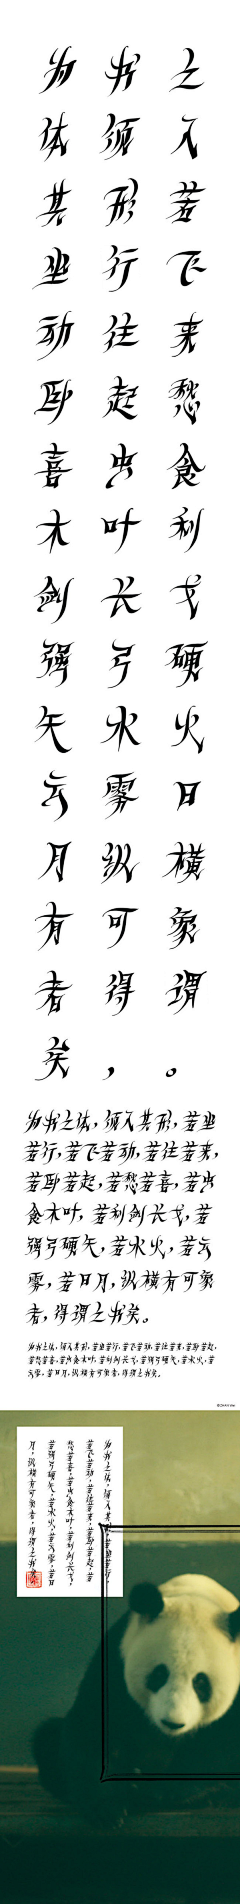 为书之
体须入
其形若
坐行飞
动往来
卧起愁
喜虫食
木叶利
剑长戈
强弓硬
矢水火
云雾日
月纵横
有可象
者得谓
矣，。
为书之体，须入其形，若坐
若行，若飞若动，若往若来，
若卧若起，若愁若喜，若虫
食木叶，若利剑长戈，若
强弓硬矢，若水火，若云
雾，若日月，纵横有可象
者，得谓之书矣。
为书之体，须入其形，若坐若行，若飞若动，若往若来，若卧若起，
若愁若喜，若虫食木叶，若利剑长戈，若强弓硬矢，若水火，若
云雾，若日月，纵横有可象者，得谓之书矣。
为书之体，须入其形，若坐若行，
若飞若动，若往若来，若卧若起，若
愁若喜，若虫食木叶，若利剑长戈，
若强弓硬矢，若水火，若云雾，若日
月，纵横有可象者，得谓之书矣。